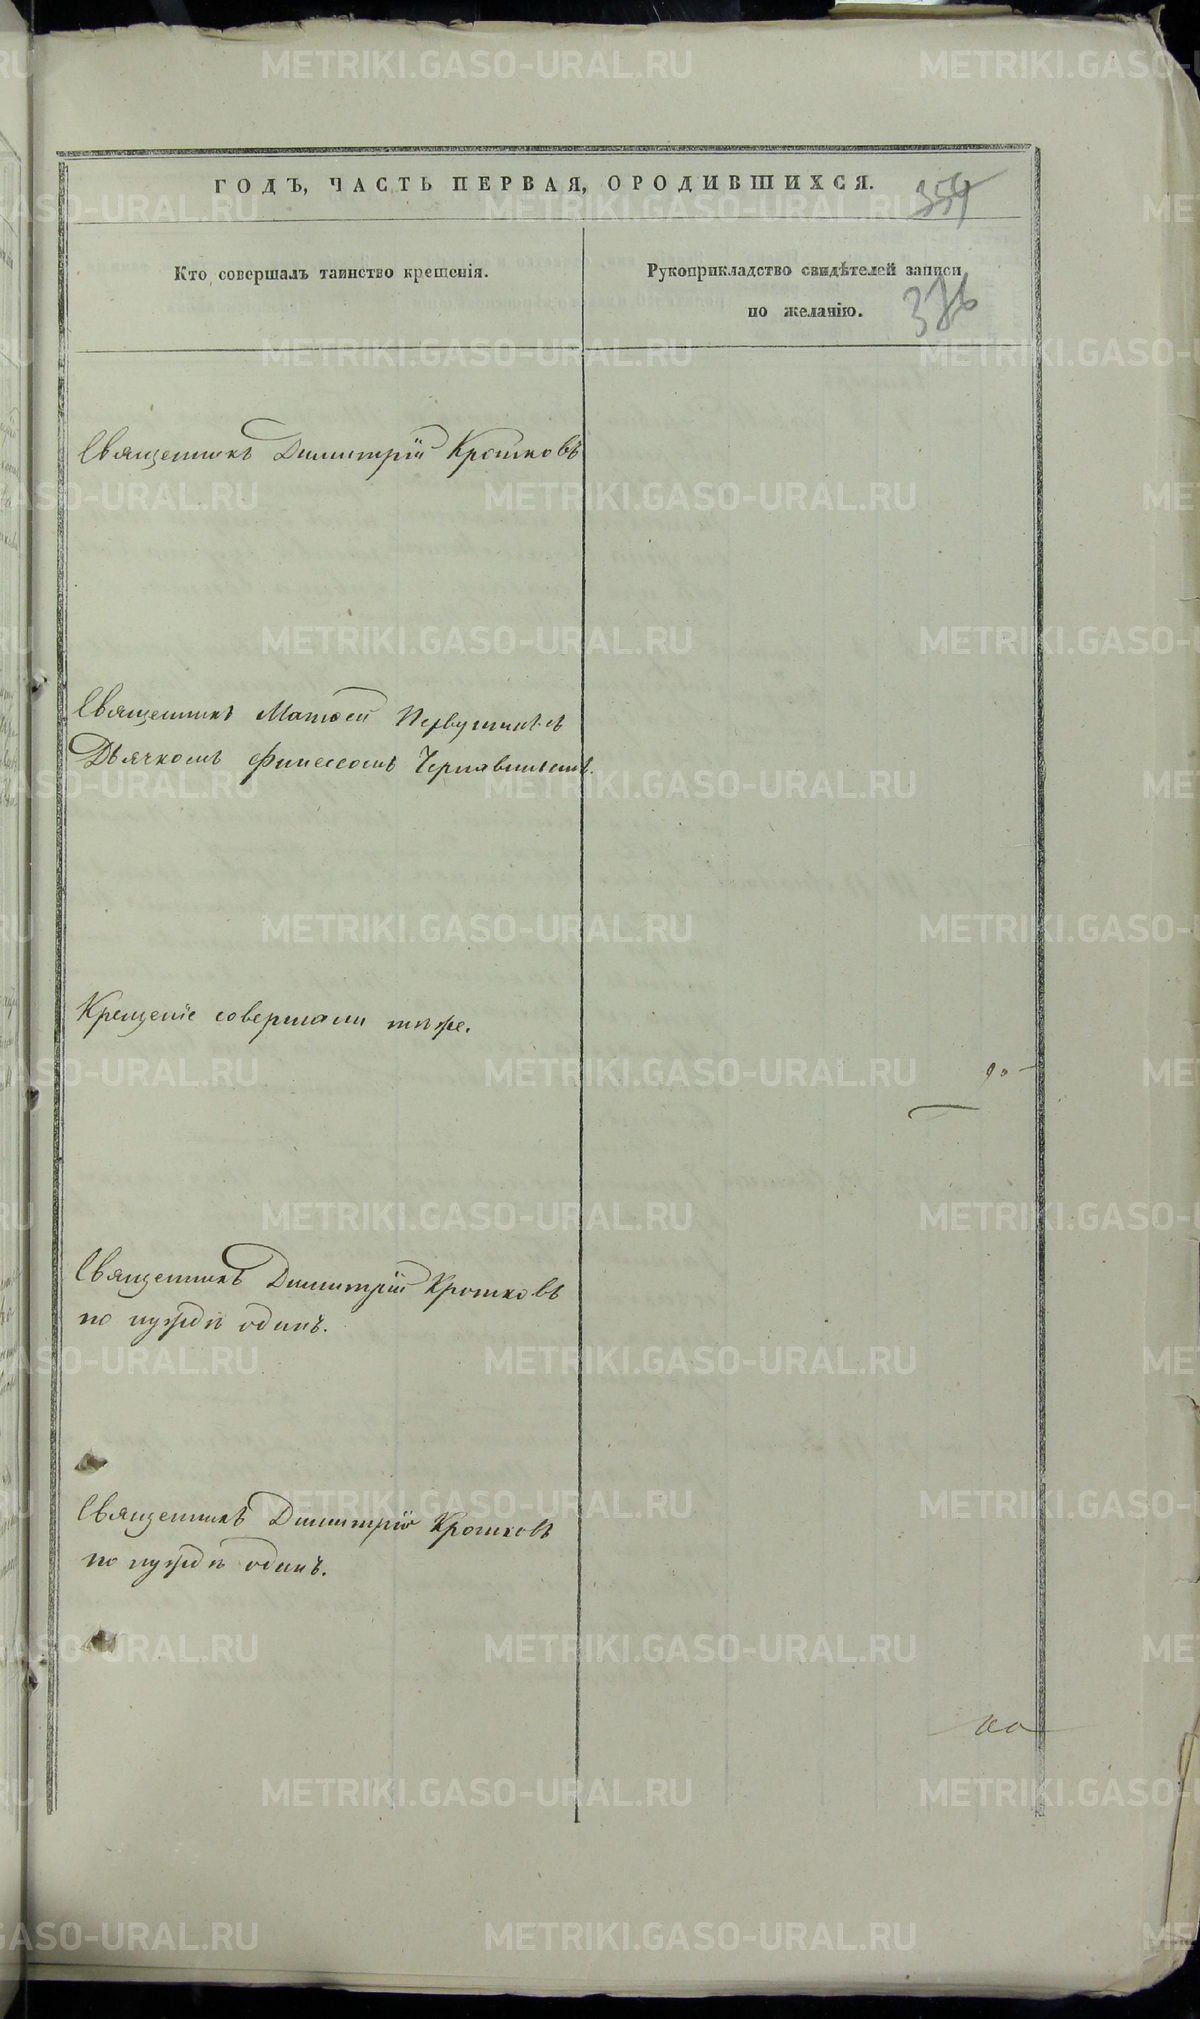 ГОДЪ, ЧАСТЬ ПЕРВАЯ, ОРОДИВШИХСЯ.
359
Кто совершалъ таинство крещенія.
Рукоприкладство свидѣтелей записи
по желанію.
376
Священникъ Димитрій Крошковъ
Священникъ Матѳей Первушинъ съ
Дьячкомъ Финеесомъ Чернавинымъ.
Крещеніе совершали тѣже.
Священникъ Димитрій Крошковъ
по нуждѣ одинъ.
Священникъ Димитрій Крошковъ
по нуждѣ одинъ.
METRIKI.GASO-URAL.RU